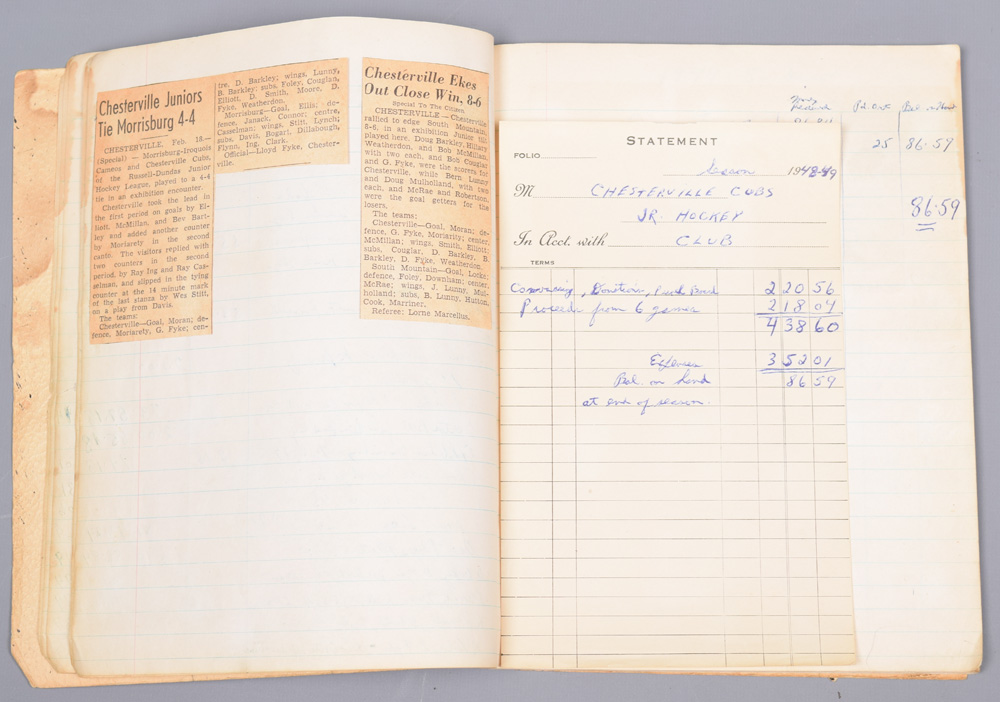 Chesterville Juniors
Tie Morrisburg 4-4
CHESTERVILLE, Feb. 18.—
(Special) — Morrisburg-Iroquois
Cameos and Chesterville Cubs,
of the Russell-Dundas Junior
Hockey League, played to a 4-4
tie in an exhibition encounter.
Chesterville took the lead in
the first period on goals by El-
liott, McMillan, and Bev Bart-
ley and added another counter
by Moriarety in the second
canto. The visitors replied with
two counters in the second
period, by Ray Ing and Ray Cas-
selman, and slipped in the tying
counter at the 14 minute mark
of the last stanza by Wes Stitt,
on a play from Davis.
The teams:
Chesterville—Goal, Moran; de-
fence, Moriarety, G. Fyke; cen-
tre, D. Barkley; wings, Lunny,
B. Barkley; subs, Foley, Couglan,
Elliott, D. Smith, Moore, D.
Fyke, Weatherdon.
Morrisburg—Goal, Ellis; de-
fence, Janack, Connor; centre,
Casselman; wings, Stitt, Lynch;
subs, Davis, Bogart, Dillabough,
Flynn, Ing, Clark.
Official—Lloyd Fyke, Chester-
ville.
Chesterville Ekes
Out Close Win, 8-6
Special To The Citizen
CHESTERVILLE — Chesterville
rallied to edge South Mountain,
8-6, in an exhibition Junior tilt
played here. Doug Barkley, Hillary
Weatherdon, and Bob McMillan,
with two each, and Bob Couglar
and G. Fyke, were the scorers for
Chesterville, while Bern Lunny
and Doug Mulholland, with two
each, and McRae and Robertson,
were the goal getters for the
losers.
The teams:
Chesterville—Goal, Moran; de-
fence, G. Fyke, Moriarity; center,
McMillan; wings, Smith, Elliott;
subs, Couglar, D. Barkley, B.
Barkley, D. Fyke, Weatherdon.
South Mountain—Goal, Locke;
defence, Foley, Downham; center,
McRae; wings, J. Lunny, Mul-
holland; subs, B. Lunny, Hutton,
Cook, Marriner.
Referee: Lorne Marcellus.
STATEMENT
FOLIO
Season 1948-49
M CHESTERVILLE CUBS
JR. HOCKEY
In Acct. with CLUB
TERMS
Canvassing, Donations, Punch Board 220 56
Proceeds from 6 games 218 04
438 60
Expenses 352 01
Bal. on hand 86 59
at end of season.
Received Pd. Out Bal.
25 86.59
86.59